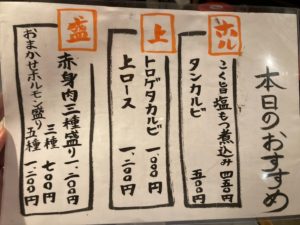 本日のおすすめ
ホル
こく旨塩もつ煮込み 四五〇円
タンカルビ 五〇〇円
上
トロゲタカルビ 一、〇〇〇円
上ロース 一、二〇〇円
盛
赤身肉三種盛り 一、二〇〇円
おまかせホルモン盛り 三種 七〇〇円
五種 一、二〇〇円